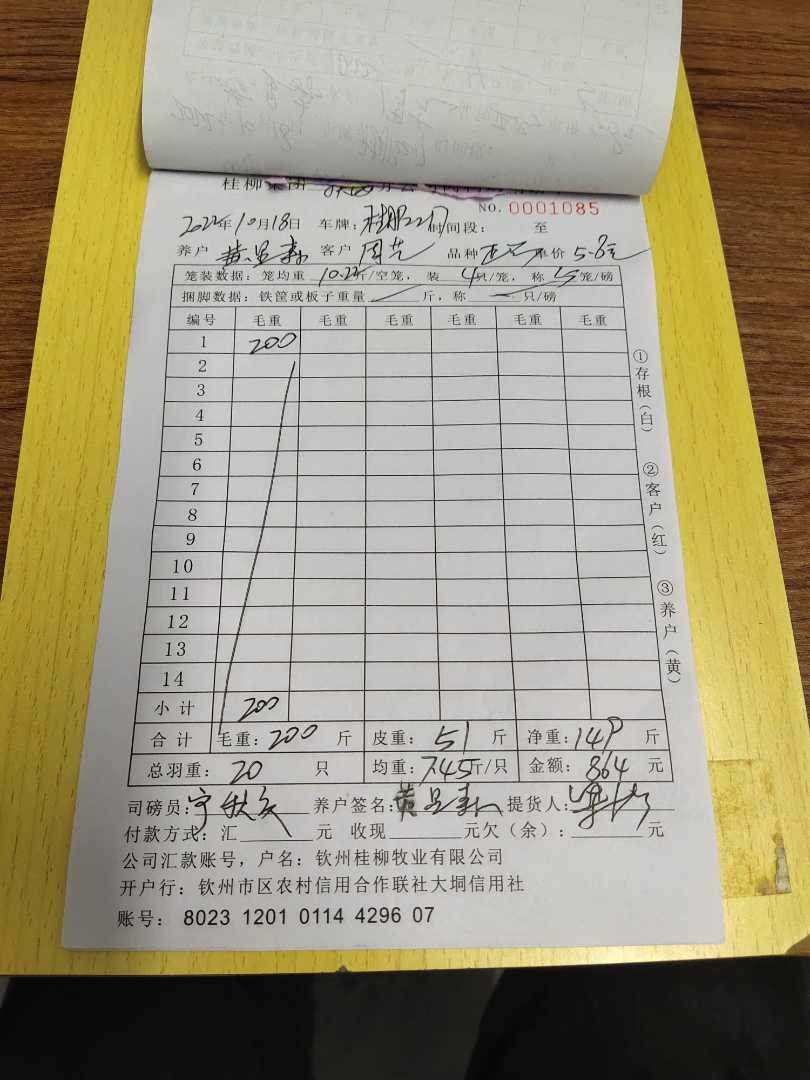 桂柳集团
NO. 0001085
2022年10月18日 车牌: 时间段: 至
养户 黄 客户 周 品种 单价 5.8元
笼装数据: 笼均重 10.2斤/空笼, 装 4只/笼, 称 5笼/磅
捆脚数据: 铁筐或板子重量 斤, 称 只/磅
编号 毛重 毛重 毛重 毛重 毛重 毛重
1 200
2
3
4
5
6
7
8
9
10
11
12
13
14
小计 200
合计 毛重: 200 斤 皮重: 51 斤 净重: 149 斤
总羽重: 20 只 均重: 7.45斤/只 金额: 864 元
司磅员: 养户签名: 黄 提货人:
付款方式: 汇 元 收现 元欠(余): 元
公司汇款账号, 户名: 钦州桂柳牧业有限公司
开户行: 钦州市区农村信用合作联社大垌信用社
账号: 8023 1201 0114 4296 07
①存根(白) ②客户(红) ③养户(黄)